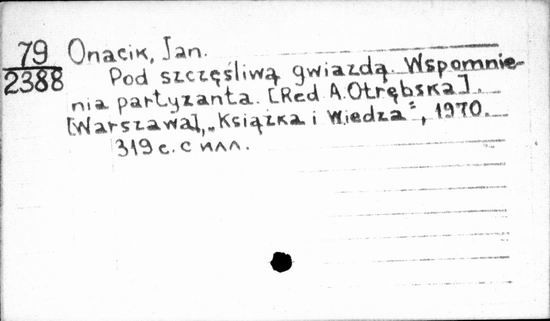 79
2388
Onacik, Jan.
Pod szczęśliwą gwiazdą. Wspomnie-
nia partyzanta. [Red A. Otrębska].
[Warszawa], „Książka i Wiedza“, 1970.
319 с. с илл.